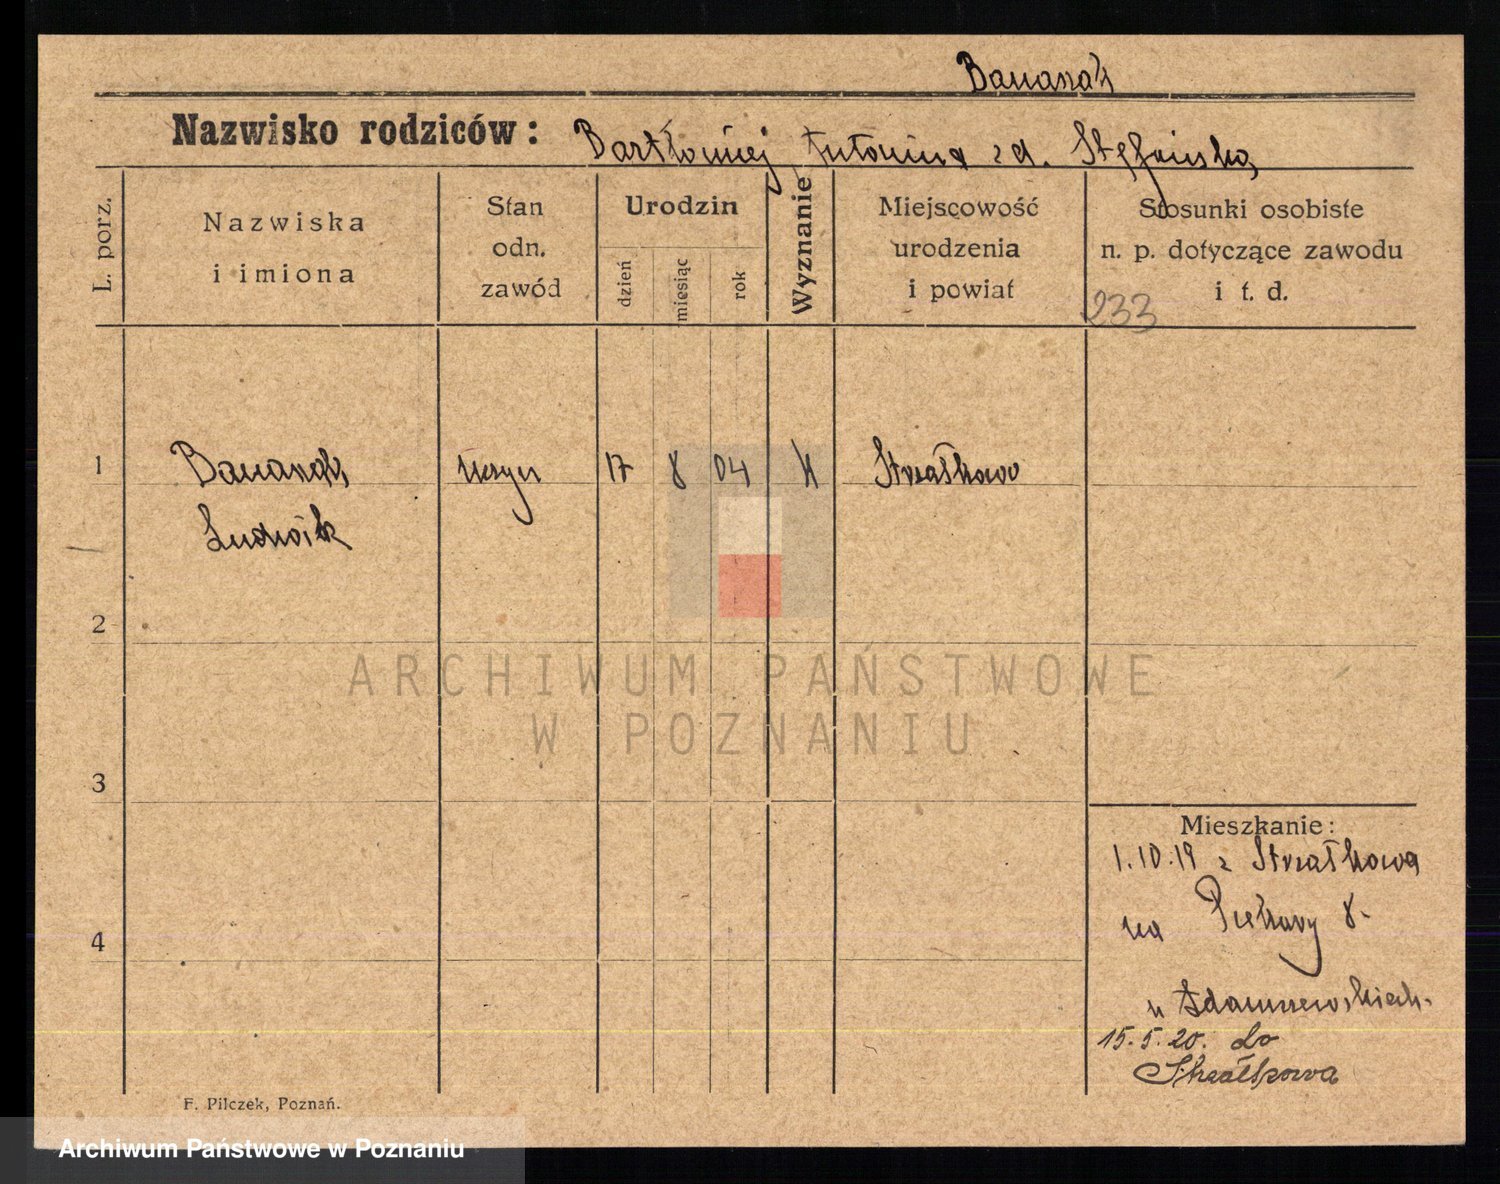 Banaszak
Nazwisko rodziców: Bartłomiej Antonina z d. Stefańska
L. porz.
Nazwiska
i imiona
Stan
odn.
zawód
Urodzin
dzień
miesiąc
rok
Wyznanie
Miejscowość
urodzenia
i powiat
Stosunki osobiste
n. p. dotyczące zawodu
i t. d.
233
1 Banaszak uczeń 17 8 04 K Strzałkowo
Ludwik
2
3
4
Mieszkanie:
1.10.19 z Strzałkowa
na Piekary 8-
u Adamszewskich.
15.5.20. do
Strzałkowa
F. Pilczek, Poznań.
ARCHIWUM PAŃSTWOWE
W POZNANIU
Archiwum Państwowe w Poznaniu